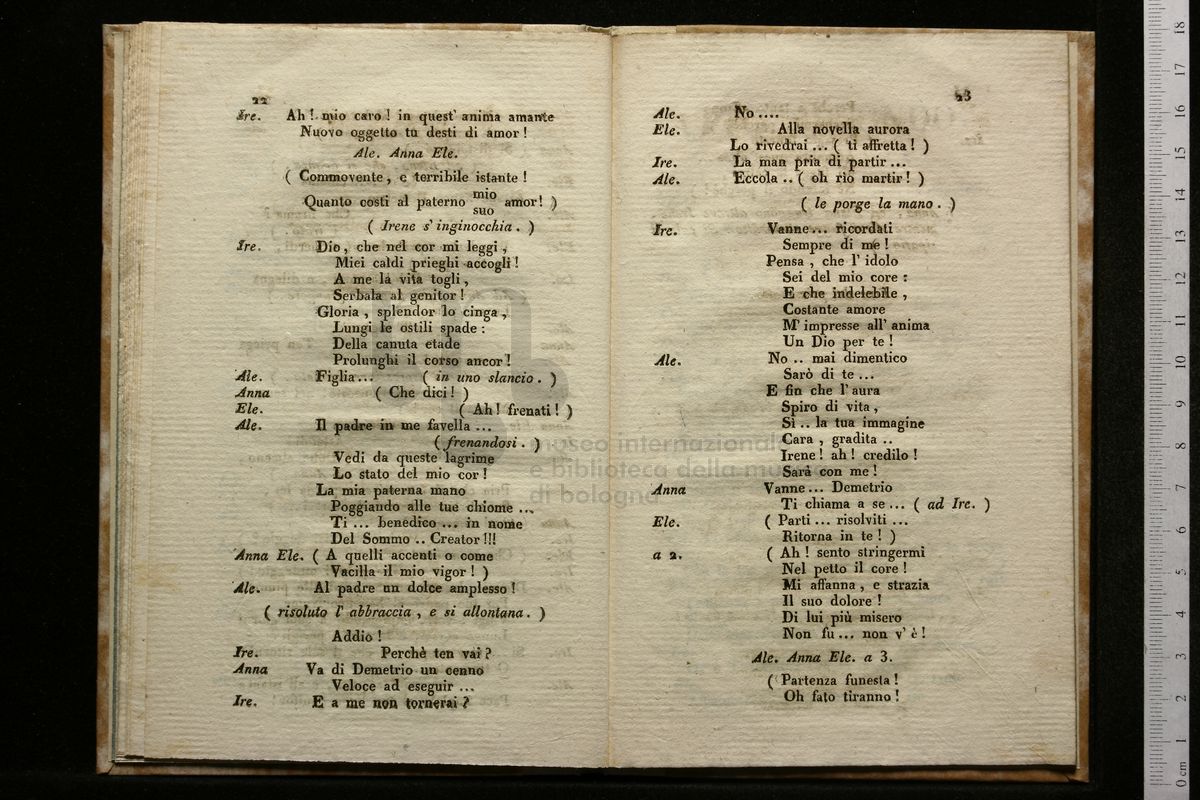 22
Ire. Ah! mio caro! in quest' anima amante
Nuovo oggetto tu desti di amor!
Ale. Anna Ele.
( Commovente, e terribile istante!
Quanto costi al paterno mio amor! )
suo
( Irene s' inginocchia. )
Ire. Dio, che nel cor mi leggi,
Miei caldi prieghi accogli!
A me la vita togli,
Serbala al genitor!
Gloria, splendor lo cinga,
Lungi le ostili spade:
Della canuta etade
Prolunghi il corso ancor!
Ale. Figlia... ( in uno slancio. )
Anna ( Che dici! )
Ele. ( Ah! frenati! )
Ale. Il padre in me favella ...
( frenandosi. )
Vedi da queste lagrime
Lo stato del mio cor!
La mia paterna mano
Poggiando alle tue chiome ...
Ti ... benedico ... in nome
Del Sommo .. Creator!!!
Anna Ele. ( A quelli accenti o come
Vacilla il mio vigor! )
Ale. Al padre un dolce amplesso!
( risoluto l' abbraccia, e si allontana. )
Addio!
Ire. Perchè ten vai?
Anna Va di Demetrio un cenno
Veloce ad eseguir ...
Ire. E a me non tornerai?
23
Ale. No....
Ele. Alla novella aurora
Lo rivedrai ... ( ti affretta! )
Ire. La man pria di partir ...
Ale. Eccola .. ( oh rio martir! )
( le porge la mano. )
Ire. Vanne... ricordati
Sempre di me!
Pensa, che l' idolo
Sei del mio core:
E che indelebile,
Costante amore
M' impresse all' anima
Un Dio per te!
Ale. No .. mai dimentico
Sarò di te ...
E fin che l' aura
Spiro di vita,
Sì .. la tua immagine
Cara, gradita ..
Irene! ah! credilo!
Sarà con me!
Anna Vanne... Demetrio
Ti chiama a se ... ( ad Ire. )
Ele. ( Parti ... risolviti ...
Ritorna in te! )
a 2. ( Ah! sento stringermi
Nel petto il core!
Mi affanna, e strazia
Il suo dolore!
Di lui più misero
Non fu... non v' è!
Ale. Anna Ele. a 3.
( Partenza funesta!
Oh fato tiranno!
museo internazionale
e biblioteca della musica
di bologna
0 cm 1 2 3 4 5 6 7 8 9 10 11 12 13 14 15 16 17 18